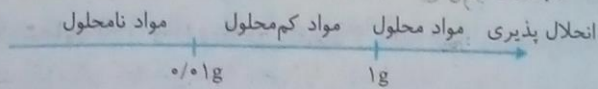 انحلال پذیری مواد محلول مواد کم‌محلول مواد نامحلول
۱g ۰/۰۱g